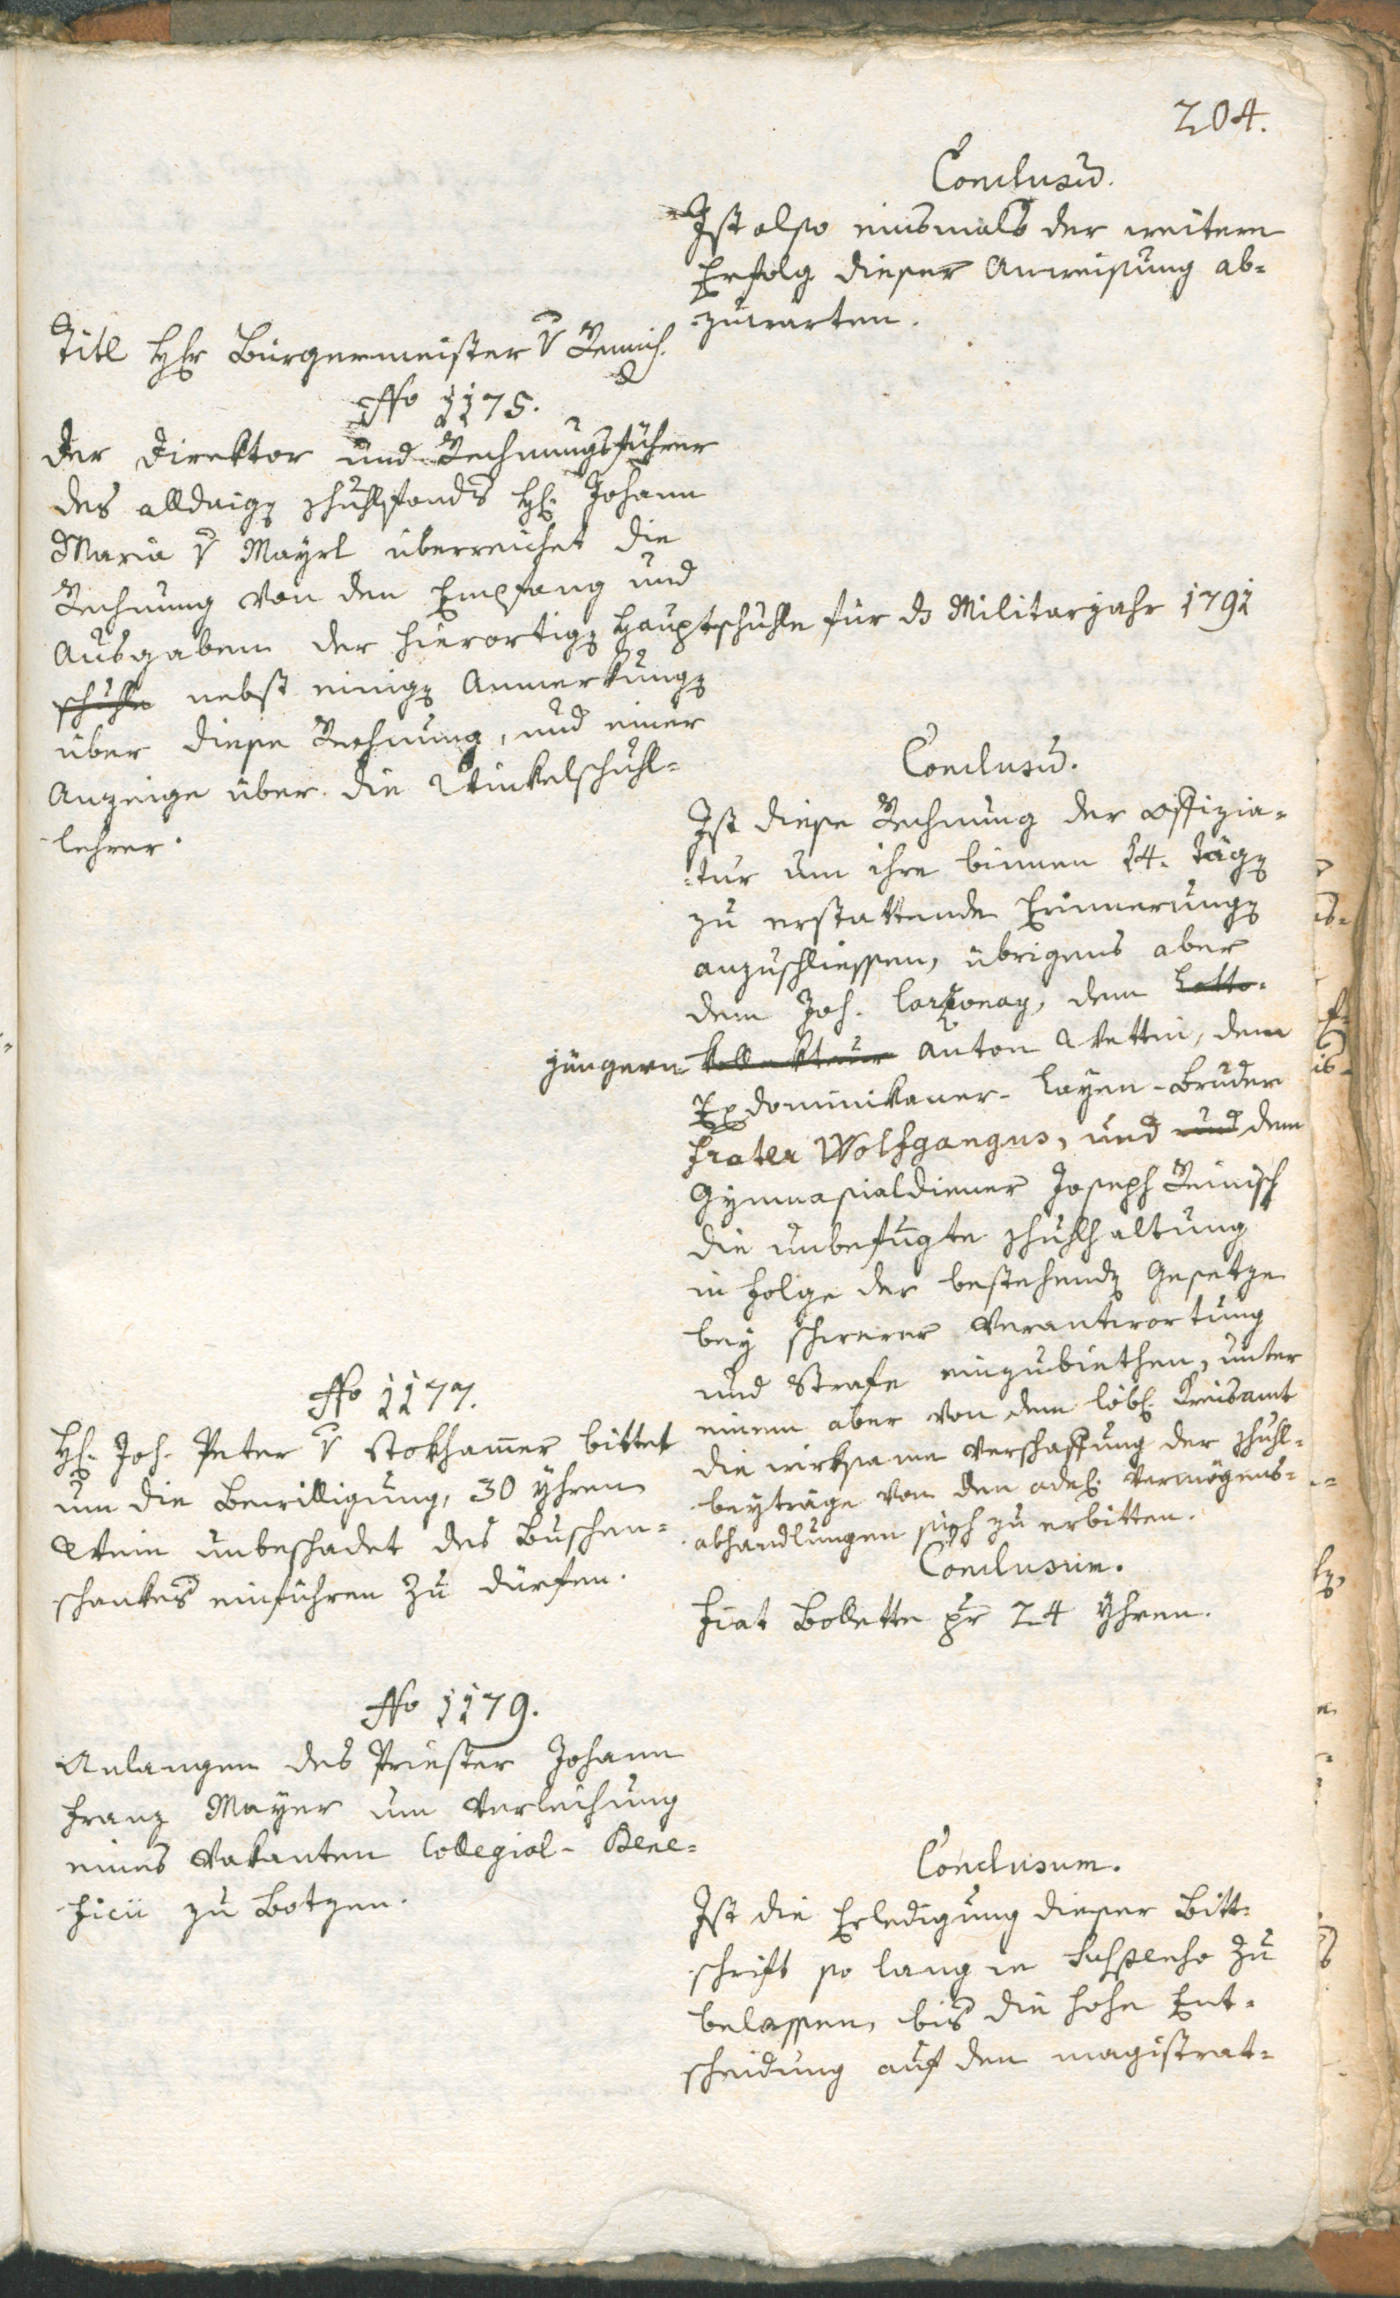 204.
Conclusum.
Ist also einsmals der weitere
Erfolg dieser Anweisung ab-
zuwarten.
Titl Hr Bürgermeister v
No 1175.
Der Direktor und Rechnungsführer
des alldaigen Schulfonds H. Johann
Maria v Mayrl überreichet die
Rechnung von den Empfang und
Ausgaben der hierortigen Hauptschuhle für das Militarjahr 1791
schuhle nebst einigen Anmerkungen
über diese Rechnung, und einer
Anzeige über die Winkelschuhl-
lehrer.
Conclusum.
Ist diese Rechnung der Offizia-
tur um ihre binnen 14. Tägen
zu erstattende Erinnerungen
anzuschliessen, übrigens aber
dem Joh. dem Lotto-
jüngern kollekteur Anton Wettin, dem
Exdominikaner-Layen-Bruder
Frater Wolfgangus, und und dem
Gymnasialdiener Joseph Reinisch
die unbefugte Schuhlhaltung
in Folge der bestehenden Gesetze
bey schwerer Verantwortung
und Strafe einzubiethen, unter
einem aber von dem löbl. Kreisamt
die wirksame Verschaffung der Schuhl-
beyträge von den adel. Vermögens-
abhandlungen sich zu erbitten.
No 1177.
H. Joh. Peter v Stokhamer bittet
um die Bewilligung, 30 Yhren
Wein unbeschadet des Buschen-
schankes einführen zu dürfen.
Conclusum.
Fiat Bollette pr 24 Yhren.
No 1179.
Anlangen des Priester Johann
Franz Mayer um Verleihung
eines vakanten Collegial-Bene-
ficii zu Botzen.
Conclusum.
Ist die Erledigung dieser Bitt-
schrift so lang in Suspenso zu
belassen, bis die hohe Ent-
scheidung auf den magistrat-